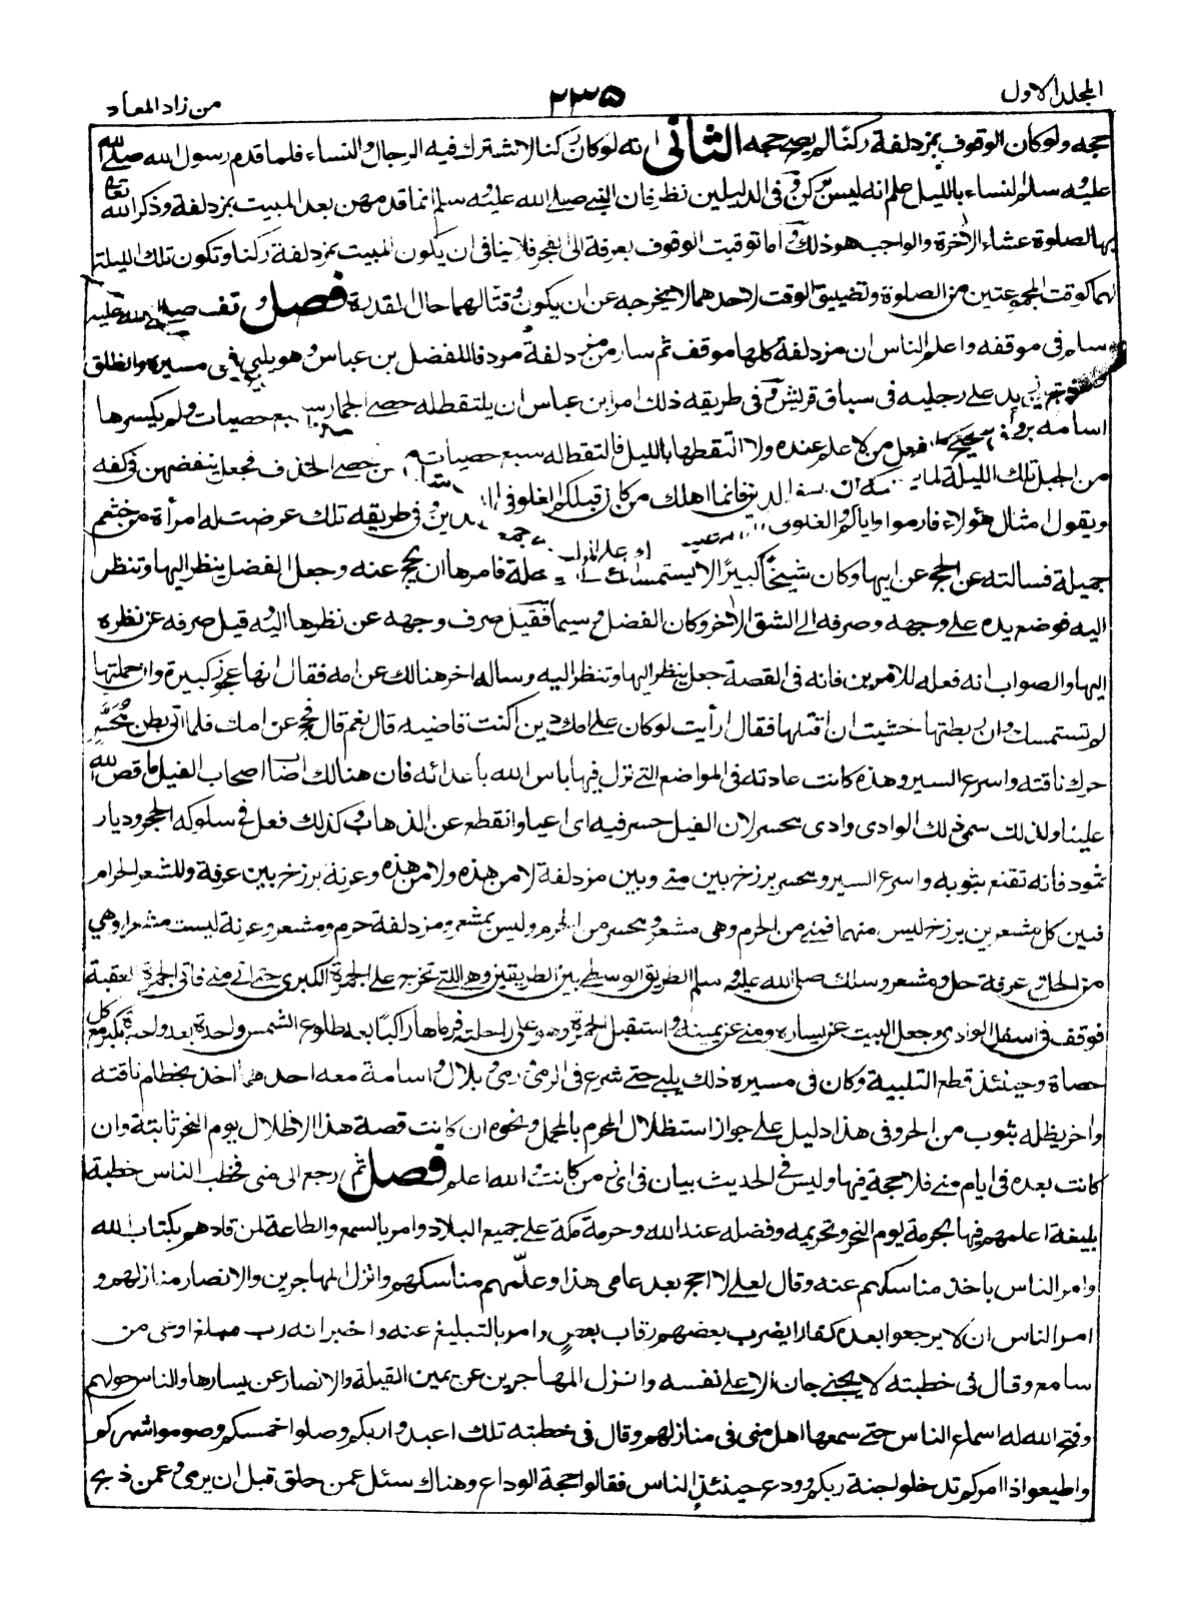 المجلد الاول ٢٣٥ من زاد المعاد
حجه ولو كان الوقوف بمزدلفة ركنا لم يصح حجه الثاني انه لو كان ركنا لاشترك فيه الرجال والنساء فلما قدم رسول الله صلى الله
عليه وسلم النساء بالليل علم انه ليس بركن وفي الدليلين نظر فان النبي صلى الله عليه وسلم انما قدمهن بعد المبيت بمزدلفة وذكر الله تعالى
بها لصلوة عشاء الآخرة والواجب هو ذلك واما توقيت الوقوف بعرفة الى الفجر فلا ينافى ان يكون المبيت بمزدلفة ركنا وتكون تلك الليلة
لهما كوقت المجموعتين من الصلوة وتضييق الوقت لاحدهما لا يخرجه عن ان يكون وقتا لهما حال القدرة فصل وقف صلى الله عليه
سلم في موقفه واعلم الناس ان مزدلفة كلها موقف ثم سار من مزدلفة مردفا للفضل بن عباس وهو يلبي في مسيره وانطلق
اسامة بن زيد على رجليه في سباق قريش وفي طريقه ذلك امر ابن عباس ان يلتقط له حصى الجمار سبع حصيات ولم يكسرها
من الجبل تلك الليلة كما يفعل من لا علم عنده ولا التقطها بالليل فالتقط له سبع حصيات من حصى الخذف فجعل ينفضهن في كفه
ويقول امثال هؤلاء فارموا واياكم والغلو في الدين فانما اهلك من كان قبلكم الغلو في الدين وفي طريقه تلك عرضت له امرأة من خثعم
جميلة فسالته عن الحج عن ابيها وكان شيخا كبيرا لا يستمسك على الراحلة فامرها ان تحج عنه وجعل الفضل ينظر اليها وتنظر
اليه فوضع يده على وجهه وصرفه الى الشق الآخر وكان الفضل وسيما فقيل صرف وجهه عن نظرها اليه وقيل صرفه عن نظره
اليها والصواب انه فعله للامرين فانه في القصة جعل ينظر اليها وتنظر اليه وساله اخر هنالك عن امه فقال انها عجوز كبيرة وان حملتها
لم تستمسك وان ربطتها خشيت ان اقتلها فقال ارأيت لو كان على امك دين اكنت قاضيه قال نعم قال فحج عن امك فلما اتى بطن مُحَسِّر
حرك ناقته واسرع السير وهذه كانت عادته في المواضع التي نزل فيها باس الله باعدائه فان هنالك اصاب اصحاب الفيل ما قص الله
علينا ولذلك سمي ذلك الوادى وادى محسر لان الفيل حسر فيه اى اعيا وانقطع عن الذهاب وكذلك فعل في سلوكه الحجر وديار
ثمود فانه تقنع بثوبه واسرع السير ومحسر برزخ بين منى وبين مزدلفة لا من هذه ولا من هذه وعرنة برزخ بين عرفة والمشعر الحرام
فبين كل مشعرين برزخ ليس منهما فمنى من الحرم وهي مشعر ومحسر من الحرم وليس بمشعر ومزدلفة حرم ومشعر وعرنة ليست مشعرا وهي
من الحل وعرفة حل ومشعر وسلك صلى الله عليه وسلم الطريق الوسطى بين الطريقين وهي التي تخرج على الجمرة الكبرى حتى اتى منى فاتى الجمرة العقبة
فوقف في اسفل الوادى وجعل البيت عن يساره ومنى عن يمينه واستقبل الجمرة وهو على راحلته فرماها راكبا بعد طلوع الشمس واحدة بعد واحدة يكبر مع كل
حصاة وحينئذ قطع التلبية وكان في مسيره ذلك يلبي حتى شرع في الرمي ورمى وبلال واسامة معه احدهما اخذ بخطام ناقته
واخر يظله بثوب من الحر وفي هذا دليل على جواز استظلال المحرم بالمحمل ونحوه ان كانت قصة هذا الاظلال يوم النحر ثابتة وان
كانت بعده في ايام منى فلا حجة فيها وليس في الحديث بيان في اى زمن كانت والله اعلم فصل ثم رجع الى منى فخطب الناس خطبة
بليغة اعلمهم فيها بحرمة يوم النحر وتحريمه وفضله عند الله وحرمة مكة على جميع البلاد وامر بالسمع والطاعة لمن قادهم بكتاب الله
وامر الناس باخذ مناسكهم عنه وقال لعلي لا احج بعد عامي هذا وعلّمهم مناسكهم وانزل المهاجرين والانصار منازلهم و
امر الناس ان لا يرجعوا بعده كفارا يضرب بعضهم رقاب بعض وامر بالتبليغ عنه واخبر انه رب مبلغ اوعى من
سامع وقال في خطبته لا يجني جان الا على نفسه وانزل المهاجرين عن يمين القبلة والانصار عن يسارها والناس حولهم
وفتح الله له اسماع الناس حتى سمعها اهل منى في منازلهم وقال في خطبته تلك اعبدوا ربكم وصلوا خمسكم وصوموا شهركم
واطيعوا اذا امركم تدخلوا جنة ربكم وودع حينئذ الناس فقالوا حجة الوداع وهناك سئل عمن حلق قبل ان يرمي وعمن ذبح